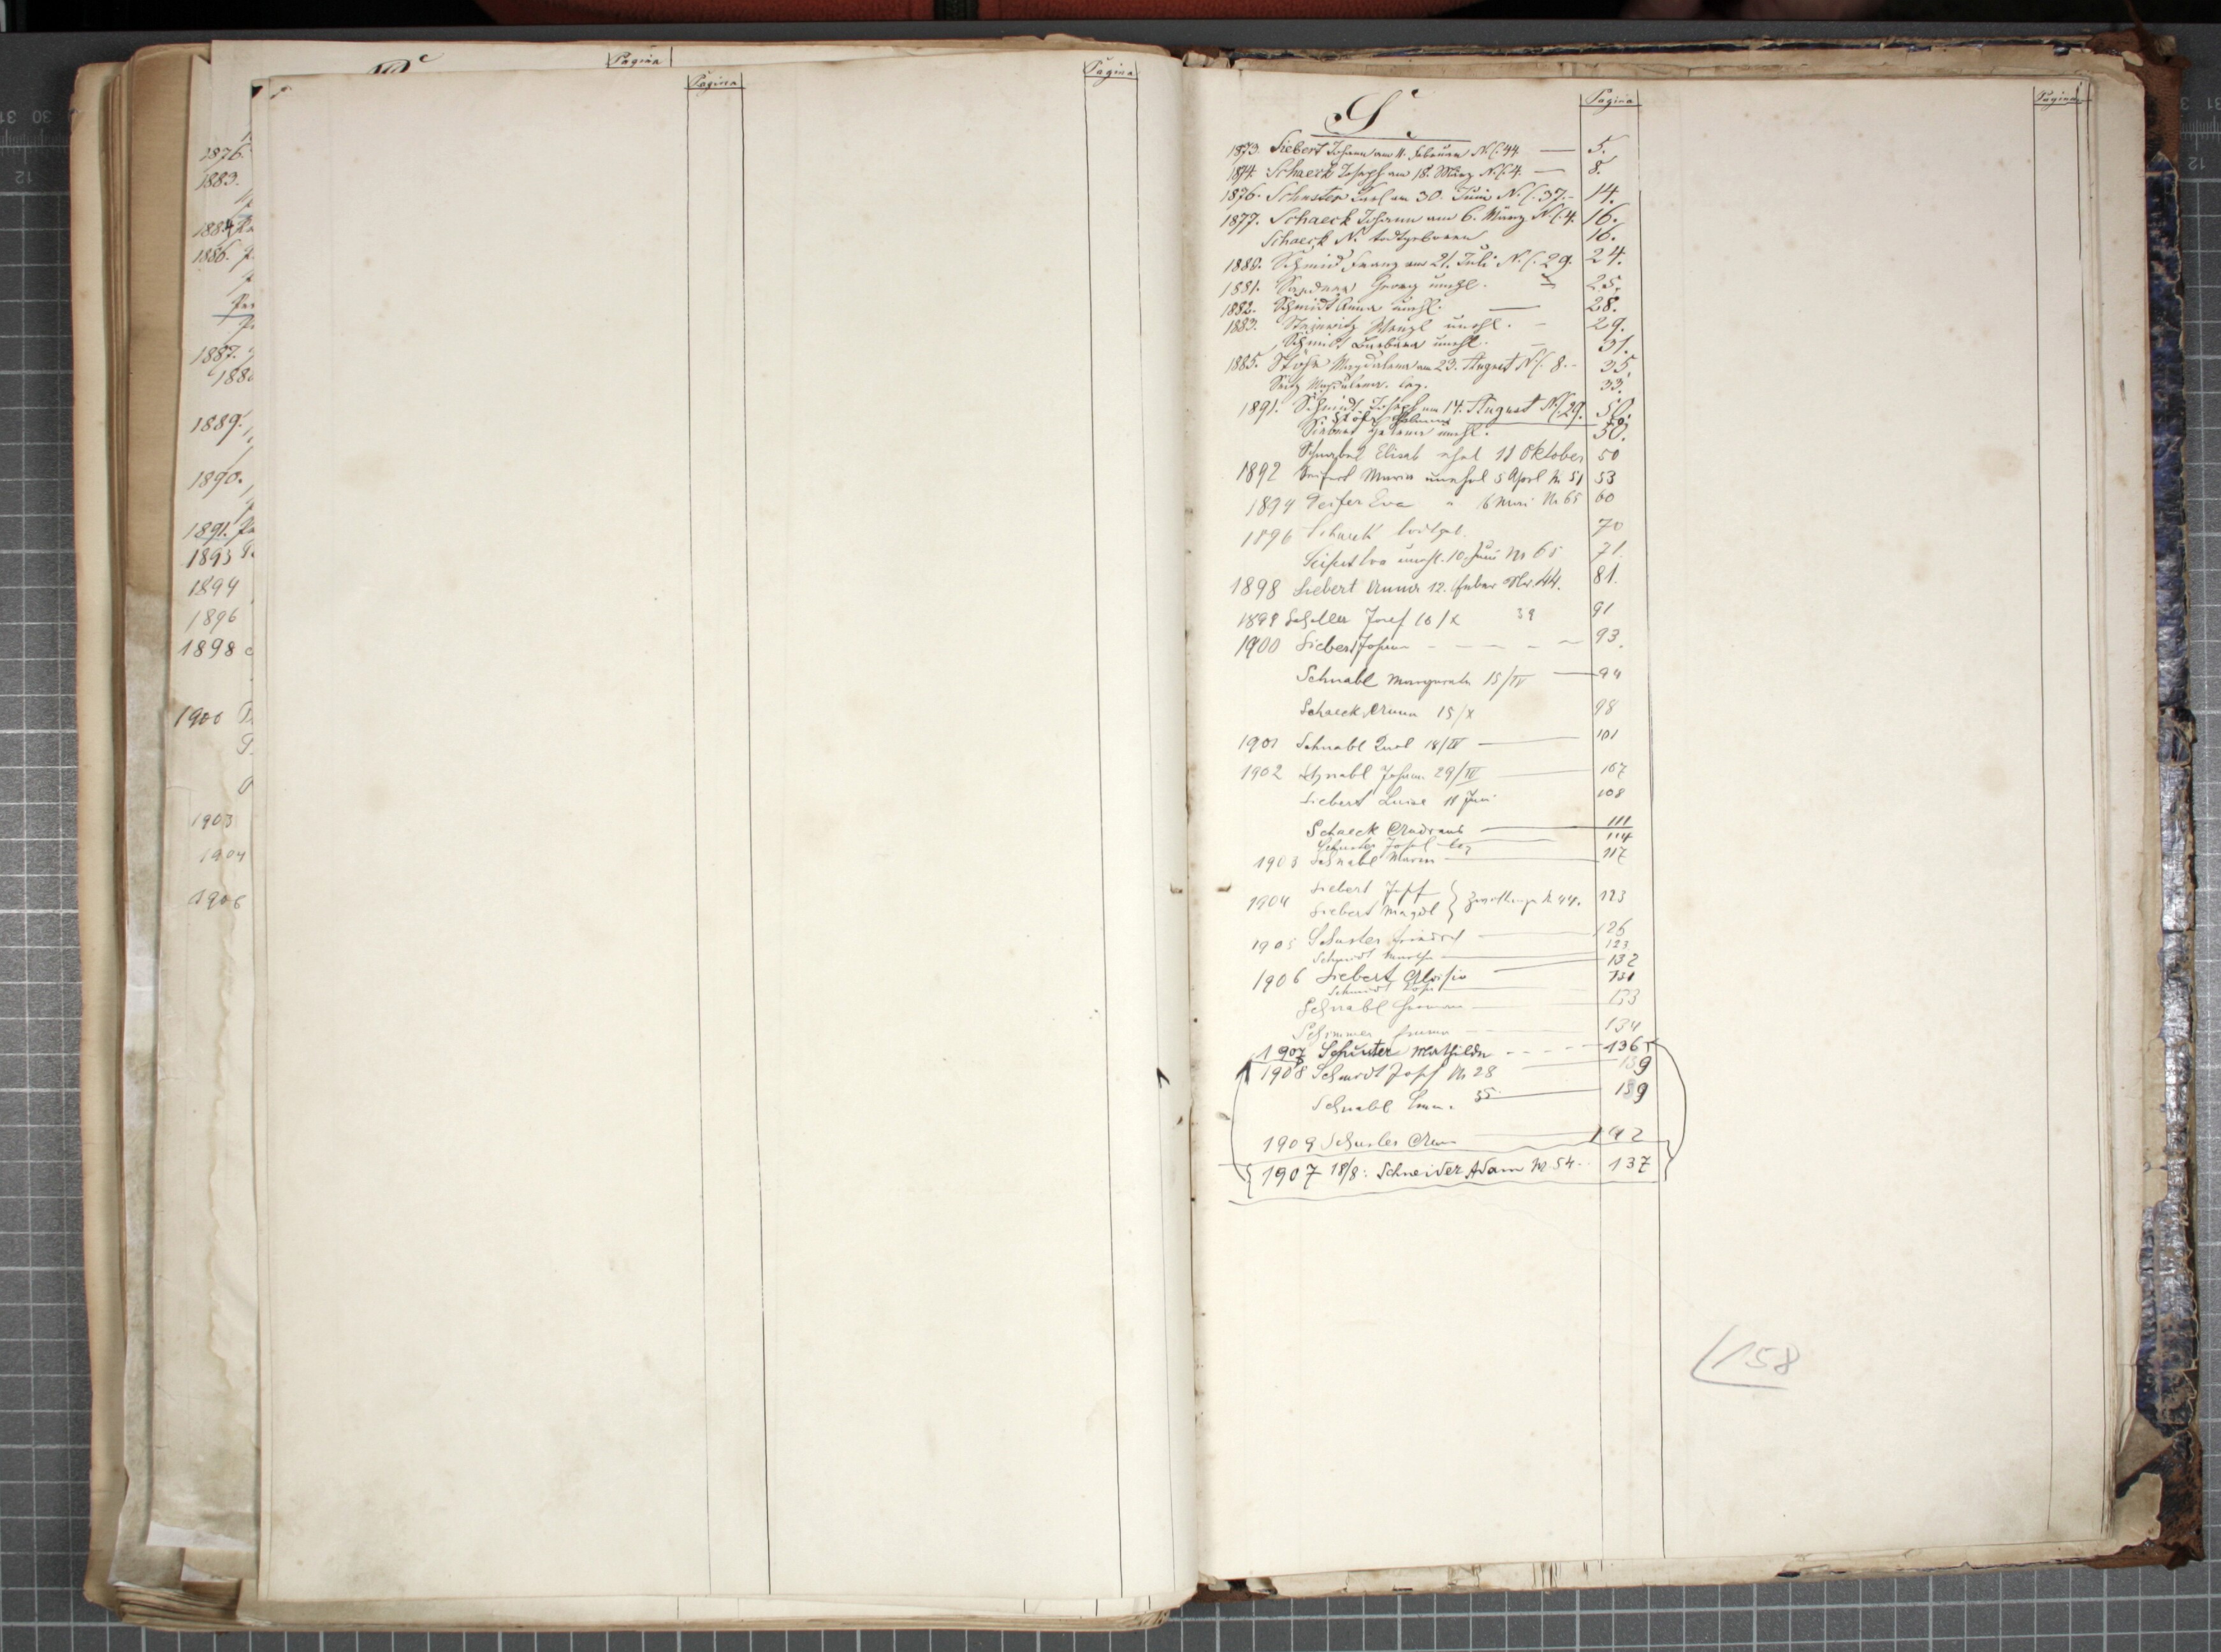 Pagina
Pagina
Pagina
1876.
1883.
1884
1886.
1887.
1889.
1890.
1891.
1893
1894
1896
1898
1900
1903
1904
1906
S.
Pagina
Pagina
1873. Siebert Johann am 11. Februar N.C. 44. — 5.
1874. Schaeck Joseph am 18. März N.C. 4. — 8.
1876. Schuster Karl am 30. Juni N.C. 37. - 14.
1877. Schaeck Johann am 6. März N.C. 4. 16.
Schaeck N. todtgeboren 16.
1880. Schmid Franz am 21. Juli N.C. 29. 24.
1881. Georg unehl. 25.
1882. Schmidt Anna unehl. — 28.
1883. Wenzl unehl. - 29.
Schmidt Barbara unehl. - 31.
1885. Stöhr Magdalena am 23. August N.C. 8. - 35.
Seitz Magdalena. leg. 33.
1891. Schmidt Joseph am 14. August N.C. 29. 50.
Siebert unehl. 50.
Schnabel Elisab ehel 11 Oktober 50
1892 Seifert Maria unehel 5 April N. 51 53
1894 Seifer Eva " 6 Mai No 65 60
1896 Schaeck todtgeb. 70
Seifert Eva unehl. 10. Juni No 65 71.
1898 Siebert Anna 12. Feber Nr. 44. 81.
1899 Schaller Josef 10/X 39 91
1900 Siebert Johann - - - - - 93.
Schnabl Margareta 15/IV — 94
Schaeck Anna 15/X 98
1901 Schnabl Karl 18/IV — 101
1902 Schnabl Johann 29/IV — 107
Siebert Luise 11 Juni 108
Schaeck Andreas — 111
Schuster Josef leg — 114
1903 Schnabl Maria — 117
1904 Siebert Josef } Zwillinge N 44. 123
Siebert Magdl
1905 Schuster Friedrich — 126
Schmidt Martha — 123
1906 Siebert Aloisia — 132
Schmidt — 131
Schnabl Herman — 133
Schimmer Emma — 134
1907 Schuster Mathilde - - - - 136
1908 Schmidt Josef No 28 — 139
Schnabl Emm. 55 — 139
1909 Schuster Anna — 142
{ 1907 18/8: Schneider Adam No 54 - - 137 }
158